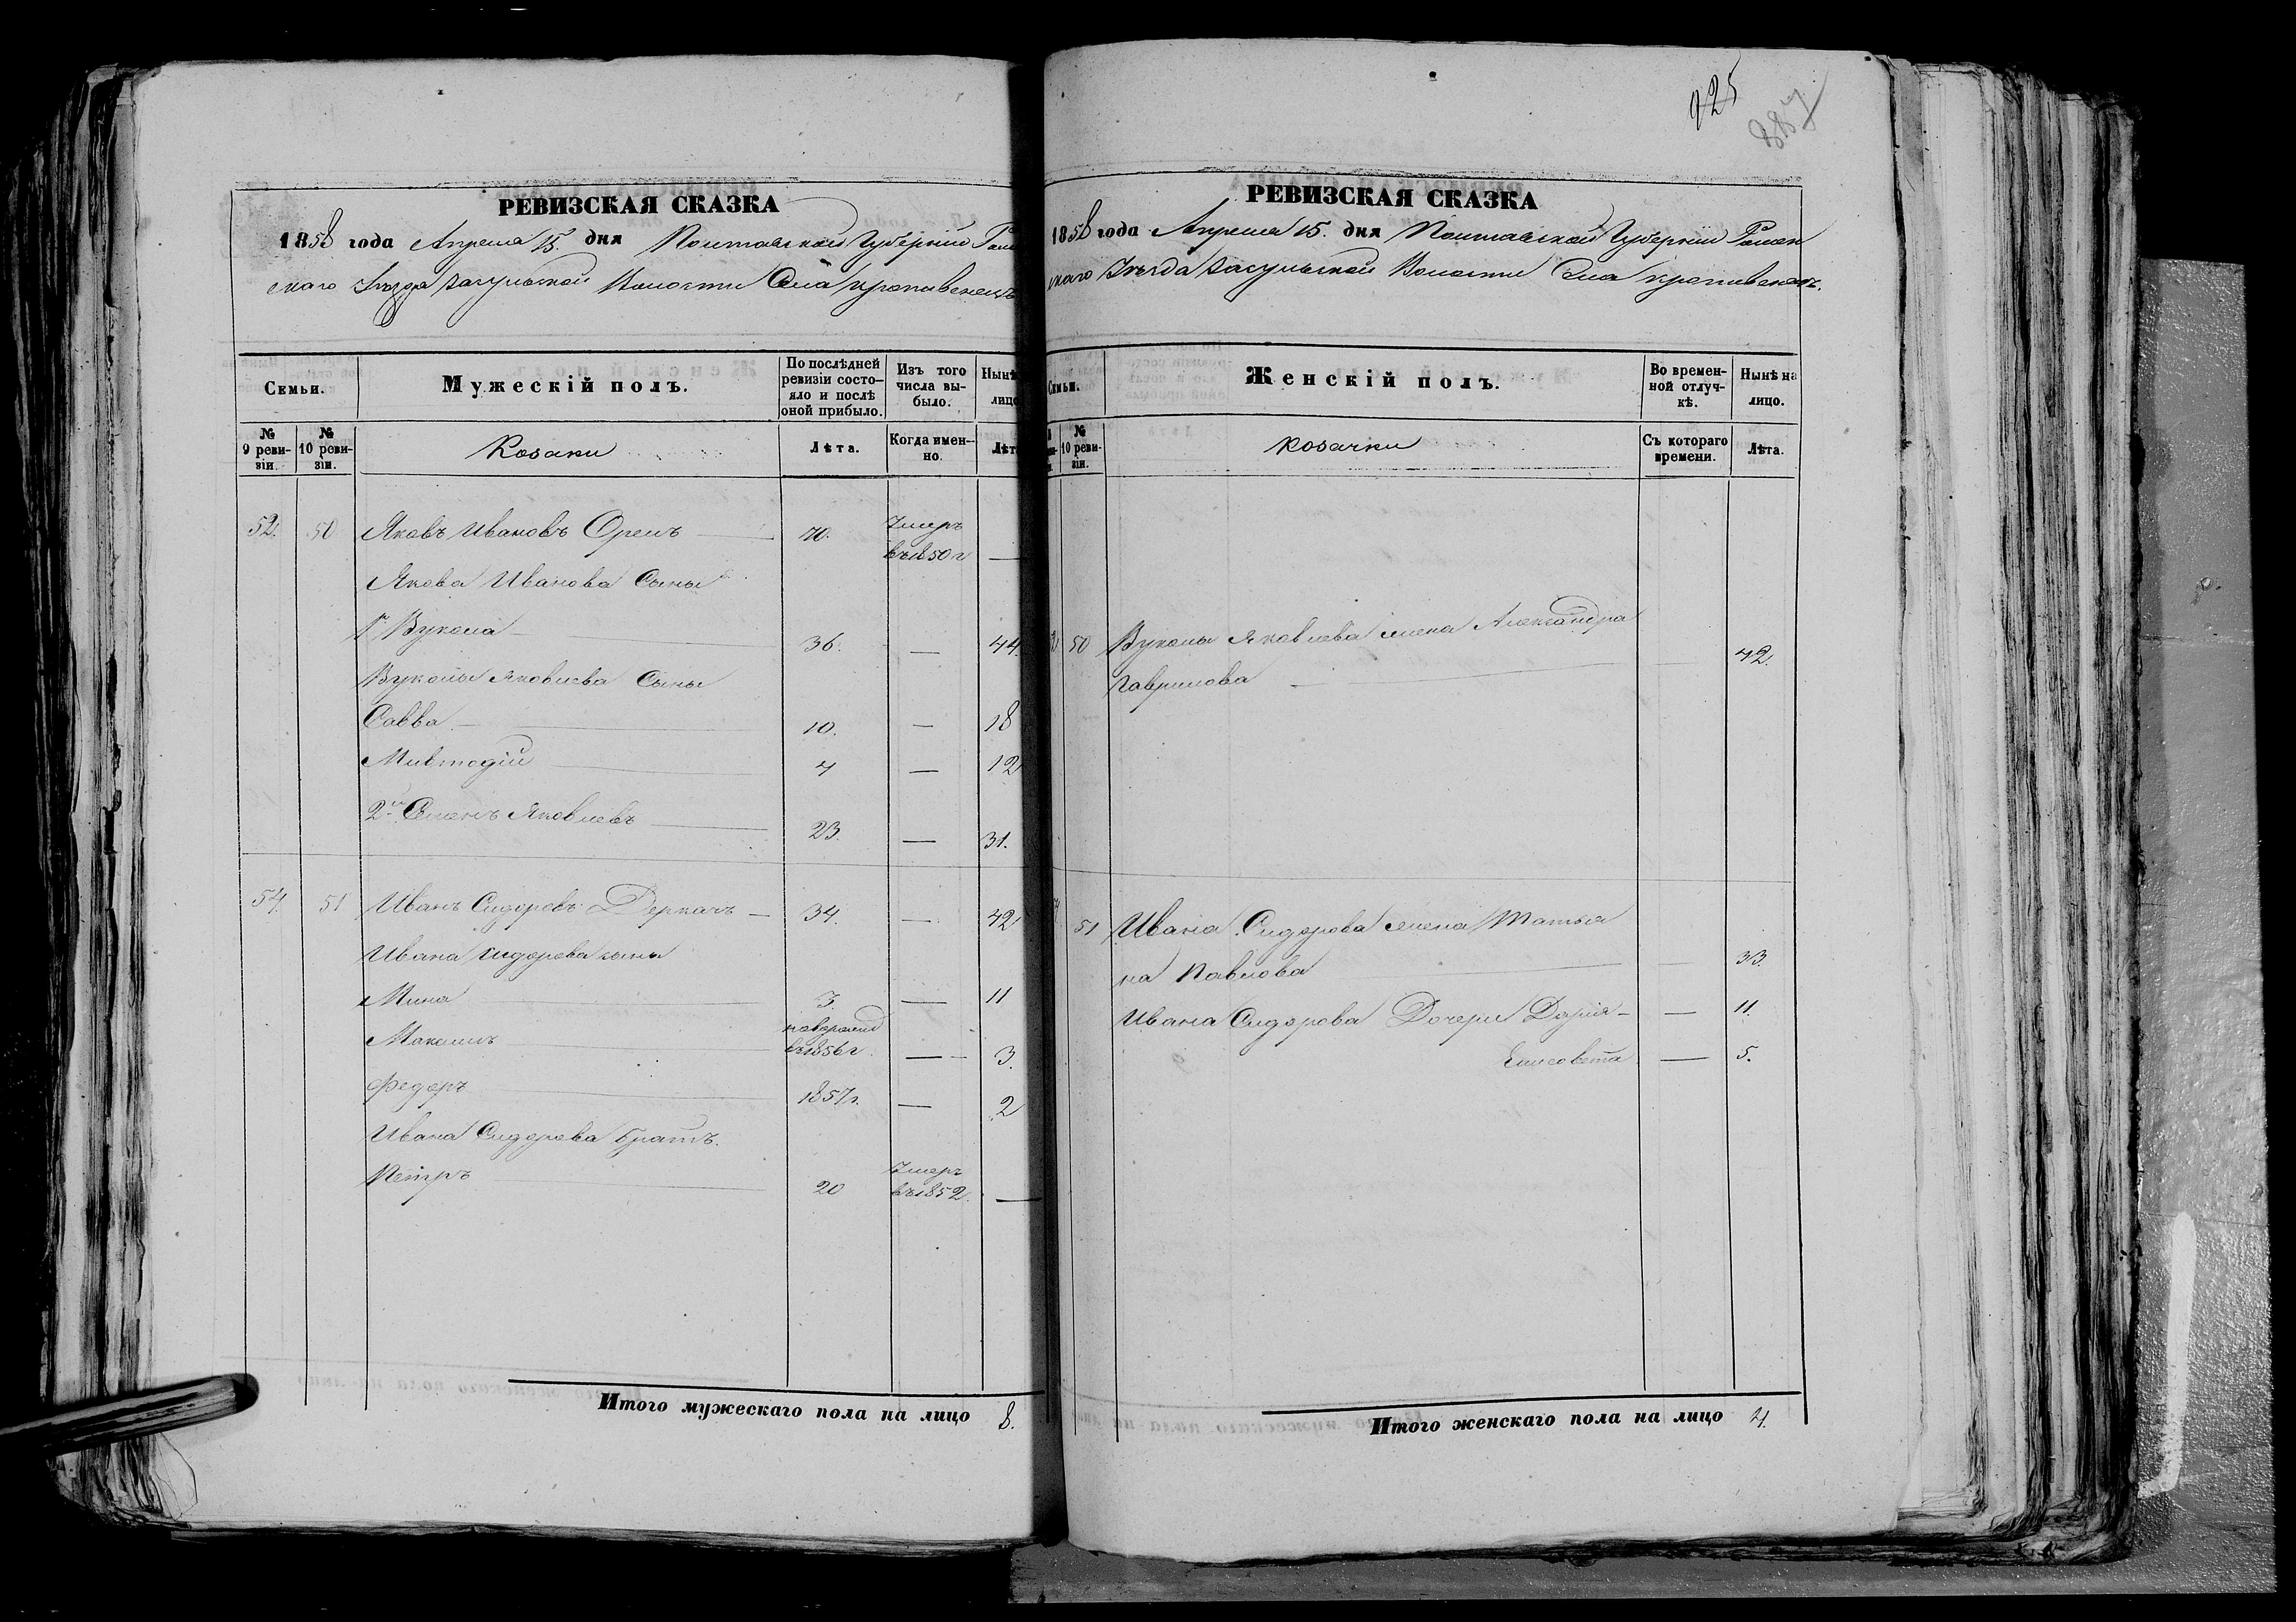 РЕВИЗСКАЯ СКАЗКА
1858 года Апреля 15. дня Полтавской Губерніи Ромен
скаго Уѣзда Засульской Волости Села Кропивенецъ
Семьи.
Мужескій полъ.
По послѣдней ревизіи состо-
яло и послѣ
оной прибыло.
Изъ того
числа вы-
было.
Нынѣ
лицо
№
9 реви-
зіи.
№
10 реви-
зіи.
Козаки
Лѣта.
Когда имен-
но.
Лѣт
52. 50 Яковъ Ивановъ Орелъ 70. Умеръ
въ 1850 г —
Якова Иванова Сыны
1й Вукола 36. — 44.
Вуколы Яковлева Сыны
Савва 10. — 18
Мивтодій 4 — 12
2й Семенъ Яковлевъ 23. — 31.
54. 51 Иванъ Сидоровъ Деркачъ 34. — 42
Ивана Сидорова сыны
Мина 3. — 11
новорожд
Максимъ въ 1856 г. — 3.
Федоръ 1857 г. — 2
Ивана Сидорова Братъ.
Петръ 20 Умеръ
въ 1852. —
Итого мужескаго пола на лицо 8.
925
887
РЕВИЗСКАЯ СКАЗКА
1858 года Апреля 15. дня Полтавской Губерніи Ромен
скаго Уѣзда Засульской Волости Села Кропивенецъ.
Семьи.
Женскій полъ.
Во времен-
ной отлуч-
кѣ.
Нынѣ на
лицо.
№
10 реви-
зіи.
Козачки
Съ котораго
времени.
Лѣта.
50 Вуколы Яковлева жена Александра
Гаврилова — 42.
51 Ивана Сидорова жена Татья
на Павлова — 33.
Ивана Сидорова Дочери Дарія — 11.
Елисовета — 5.
Итого женскаго пола на лицо 4.